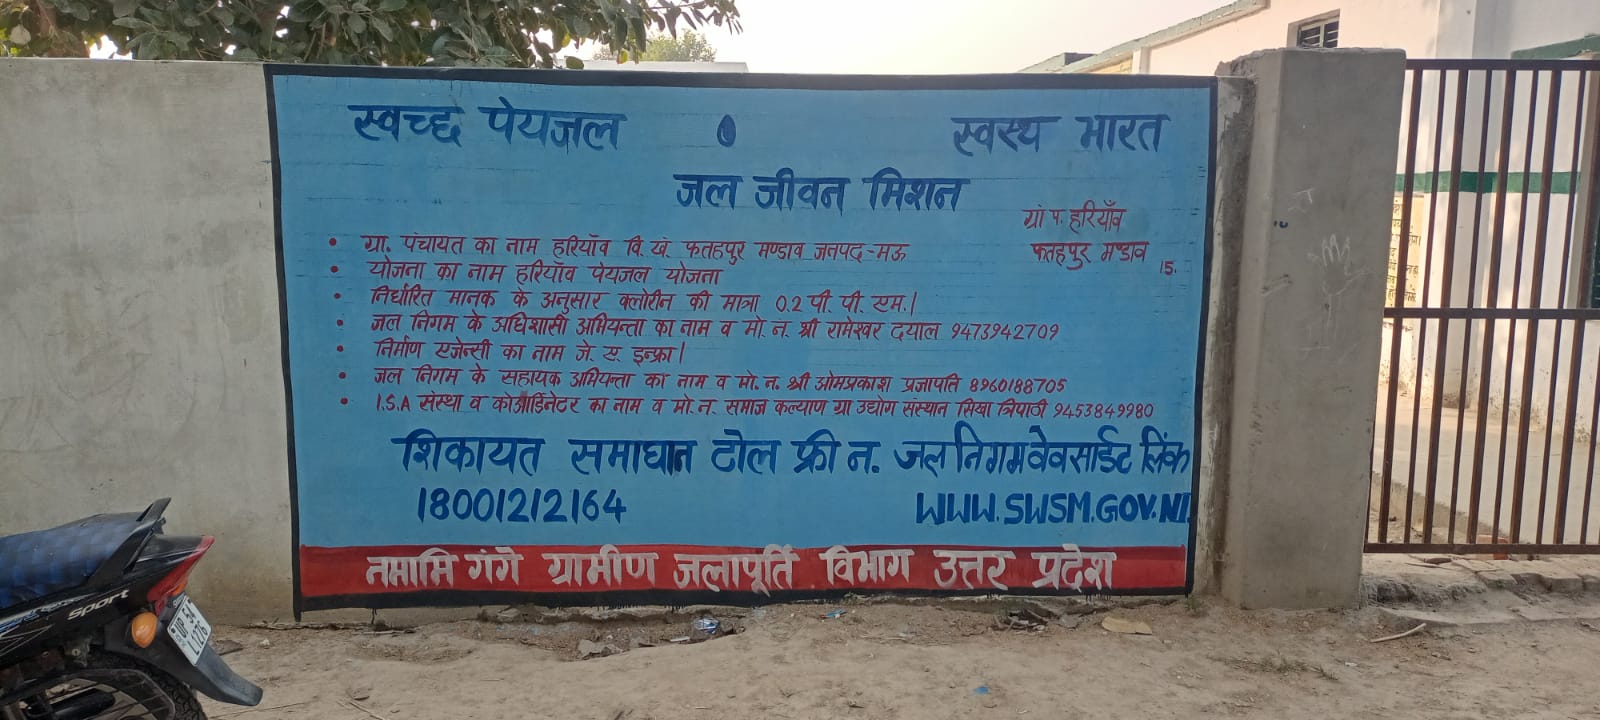 स्वच्छ पेयजल स्वस्थ भारत
जल जीवन मिशन
ग्रा प. हरियाँव
फतहपुर मण्डाव
15.
• ग्रा. पंचायत का नाम हरियाँव वि.खं. फतहपुर मण्डाव जनपद-मऊ
• योजना का नाम हरियाँव पेयजल योजना
• निर्धारित मानक के अनुसार क्लोरीन की मात्रा 0.2 पी. पी. एम.।
• जल निगम के अधिशासी अभियन्ता का नाम व मो. न. श्री रामेश्वर दयाल 9473942709
• निर्माण एजेन्सी का नाम जे. ए. इन्फ्रा।
• जल निगम के सहायक अभियन्ता का नाम व मो. न. श्री ओमप्रकाश प्रजापति 8960188705
• I.S.A संस्था व कोआर्डिनेटर का नाम व मो. न. समाज कल्याण ग्रा उद्योग संस्थान सिखा त्रिपाठी 9453849980
शिकायत समाधान टोल फ्री न. जल निगम वेवसाईट लिंक
18001212164 WWW.SWSM.GOV.NI.
नमामि गंगे ग्रामीण जलापूर्ति विभाग उत्तर प्रदेश
Sport
UP 54
L 1276